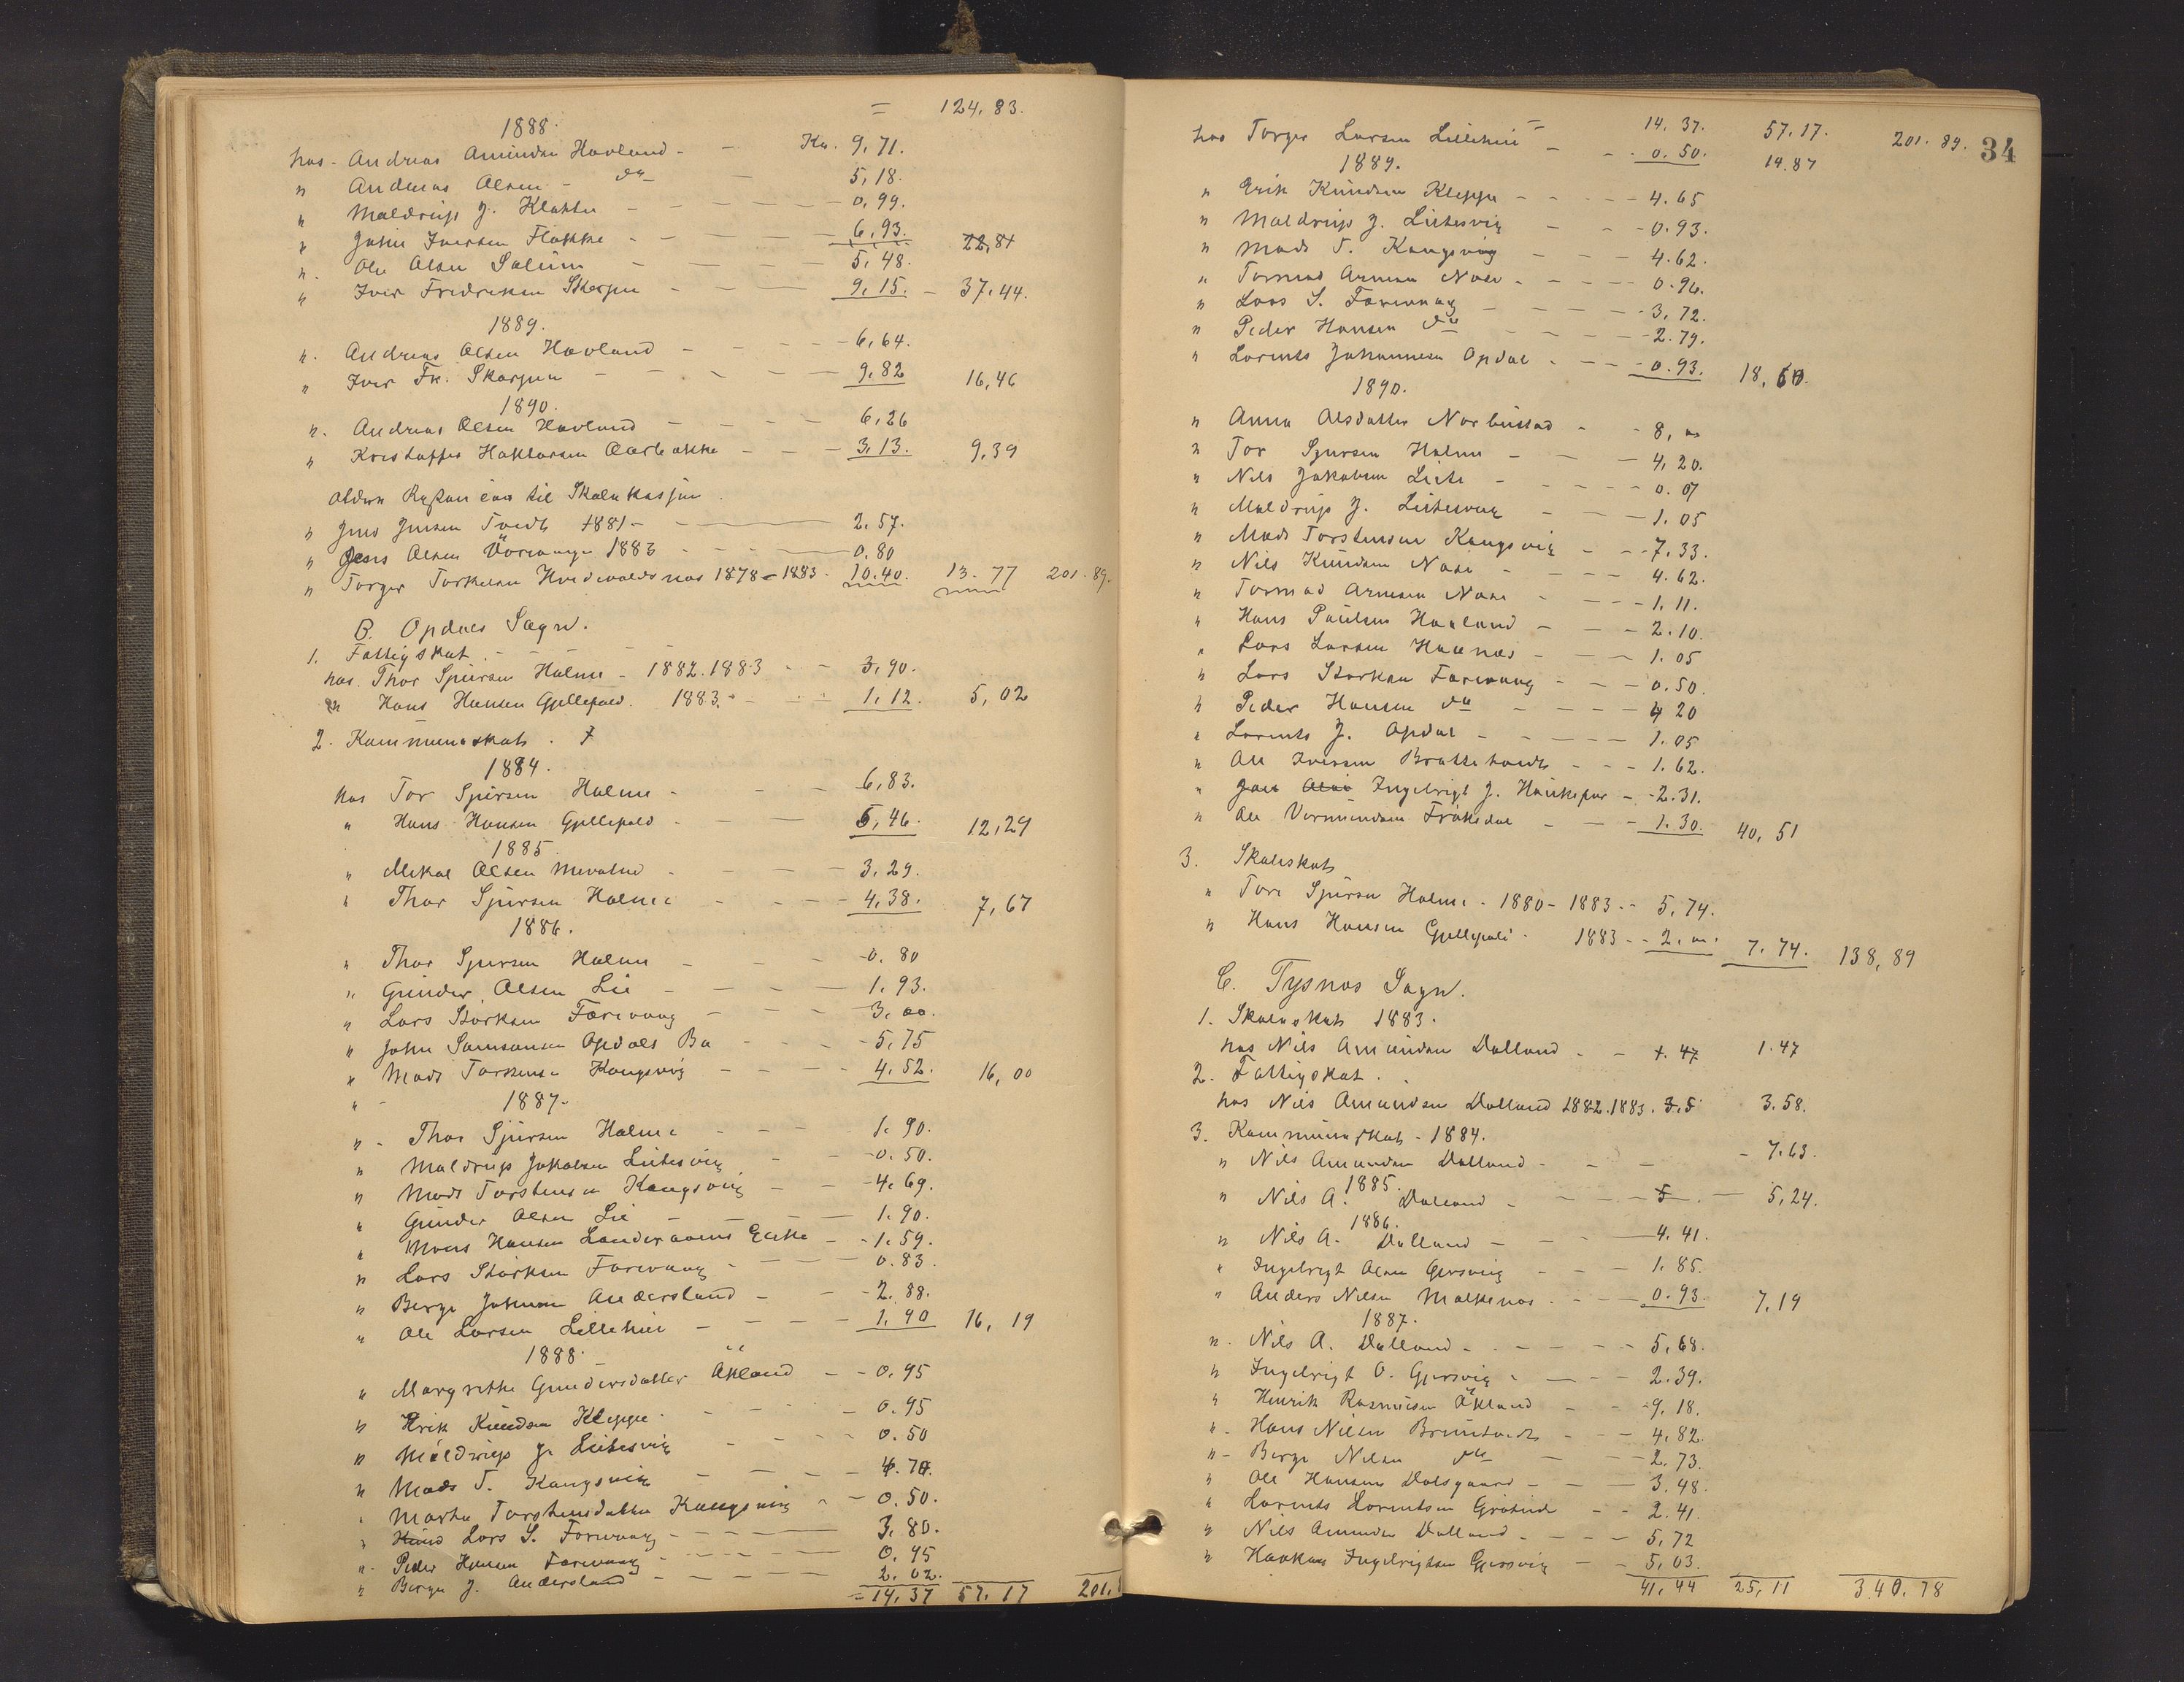 = 124,83.
1888.
hos. Andreas Amundsen Havland - - Kr. 9,71.
" Andreas Olsen - do - 5,18.
" Maldrup J. Klokke - - - - 0,99.
" John Iversen Flakke - - - - 6,93. 22,81
" Ole Olsen Solum - - - - 5,48.
" Iver Fredriksen Skarpen - - - 9,15. - 37,44.
1889.
". Andreas Olsen Havland - - - 6,64.
" Iver Fr. Skarpen - - - - 9,82 16,46
1890.
". Andreas Olsen Havland - - - 6,26
" Kristoffer Haktorsen Aarbakke - - - 3,13. 9,39
Ældre Restancer til Skolekassen.
" Jens Jensen Tvedt 1881 - - 2.57.
" Jens Olsen Vaarvaagen 1883 - - 0.80
" Torger Torkelsen Hvidevaldsnes 1878-1883. 10.40. 13.77 201.89.
B. Opdals Sogn.
1. Fattigskat. - -
hos. Thor Sjursen Holme - 1882.1883 - - 3,90.
" Hans Hansen Gjellefald. 1883. - - - 1,12. 5,02
2. Kommuneskat.
1884.
hos Tor Sjursen Holme - - - 6,83.
" Hans Hansen Gjellefald - - - 5,46. 12,29
1885.
" Mikal Olsen Mevatne - - - 3,29.
" Thor Sjursen Holme - - - 4,38. 7,67
1886.
" Thor Sjursen Holme - - - 0.80
" Gunder Olsen Lie - - - 1,93.
" Lars Storksen Færevaag - - - 3,00.
" John Samsonsen Opdals Bø - - - 5,75
" Mads Torstensen Kongsvig - - - 4,52. 16,00
" - 1887.
" - Thor Sjursen Holme - - - 1.90.
" Maldrup Jakobsen Lietesvig - - 0.50.
" Mads Torstensen Kongsvig - - 4.69.
" Gunder Olsen Lie - - - 1.90.
" Mons Hansen - 1.59.
" Lars Storksen Færevaag - - - 0.83
" Berge Johnsen Andersland - - 2.88.
" Ole Larsen Lillehei - - - - 1,90 16,19
1888.
" Margrethe Gundersdatter Økland - - 0.95
" Erik Knudsen Kleppe - - - - 0.95
" Maldrup J. Lietesvig - - - 0.50
" Mads T. Kongsvig - - - 4.70.
" Marta Torstensdatter Kongsvig - - 0.50.
" Knud Lars S. Færevaag - - - 3.80.
" Peder Hansen Færevaag - - - 0.95
" Berge J. Andersland - - - 2.02.
= 14,37 57,17 201.
34
= 14.37. 57.17. 201.89.
hos Torger Larsen Lillehei - - 0.50. 14.87
1889.
" Erik Knudsen Kleppe - - - - 4.65
" Maldrup J. Lietesvig - - - 0.93.
" Mads T. Kongsvig - - - 4.62.
" Tormod Arnesen Nose - - - - 0.96.
" Lars S. Færevaag - - - - 3,72.
" Peder Hansen do - - - - 2.79.
" Lorents Johannesen Opdal - - - 0.93. 18,60.
1890.
" Anna Olsdatter Norbustad - - 8,00
" Tor Sjursen Holme - - - 4,20.
" Nils Jakobsen Liete - - - - 0.07
" Maldrup J. Lietesvig - - - 1.05
" Mads Torstensen Kongsvig - - - 7.33.
" Nils Knudsen Nose - - - - 4.62.
" Tormod Arnesen Nose - - - - 1.11.
" Hans Paulsen Haaland - - - 2.10.
" Lars Larsen - - - 1.05
" Lars Storksen Færevaag - - - 0.50.
" Peder Hansen do - - - - 4 20
" Lorents J. Opdal - - - - - 1.05
" Ole Iversen Brattetveit - - - 1.62.
" Ingebrigt J. - - 2.31.
" Ole Vermundsen Frøkedal - - - 1.30. 40,51
3. Skoleskat
" Tore Sjursen Holme - 1880-1883 - - 5,74.
" Hans Hansen Gjellefald - 1883 - - 2,00. 7.74. 138,89
C. Tysnes Sogn.
1. Skoleskat 1883.
hos Nils Amundsen Dalland - - 1.47 1.47
2. Fattigskat. .
hos Nils Amundsen Dalland 1882.1883. 3.5 3.58.
3. Kommuneskat - 1884.
" Nils Amundsen Dalland - - - - 7.63.
1885.
" Nils A. Dalland - - - - 5 - 5,24.
1886.
" Nils A. Dalland - - - 4.41.
" Ingebrigt Olsen Gjersvig - - - 1.85.
" Anders Nilsen Malkenes - - - 0.93. 7,19
1887.
". Nils A. Dalland - - - - - 5,68.
" Ingebrigt O. Gjersvig - - - - 2.39.
" Henrik Rasmusen Økland - - 9,18.
" Hans Nilsen Bruntveit - - - 4,82.
" - Berge Nilsen do - - 2.73.
" Ole Hansen Dalsgaard - - - 3.48.
" Lorents Lorentsen - - 2.41.
" Nils Amundsen Dalland - - - - 5,72
" Haakon Ingebrigtsen Gjersvig - - 5,03.
41,44 25,11 340.78